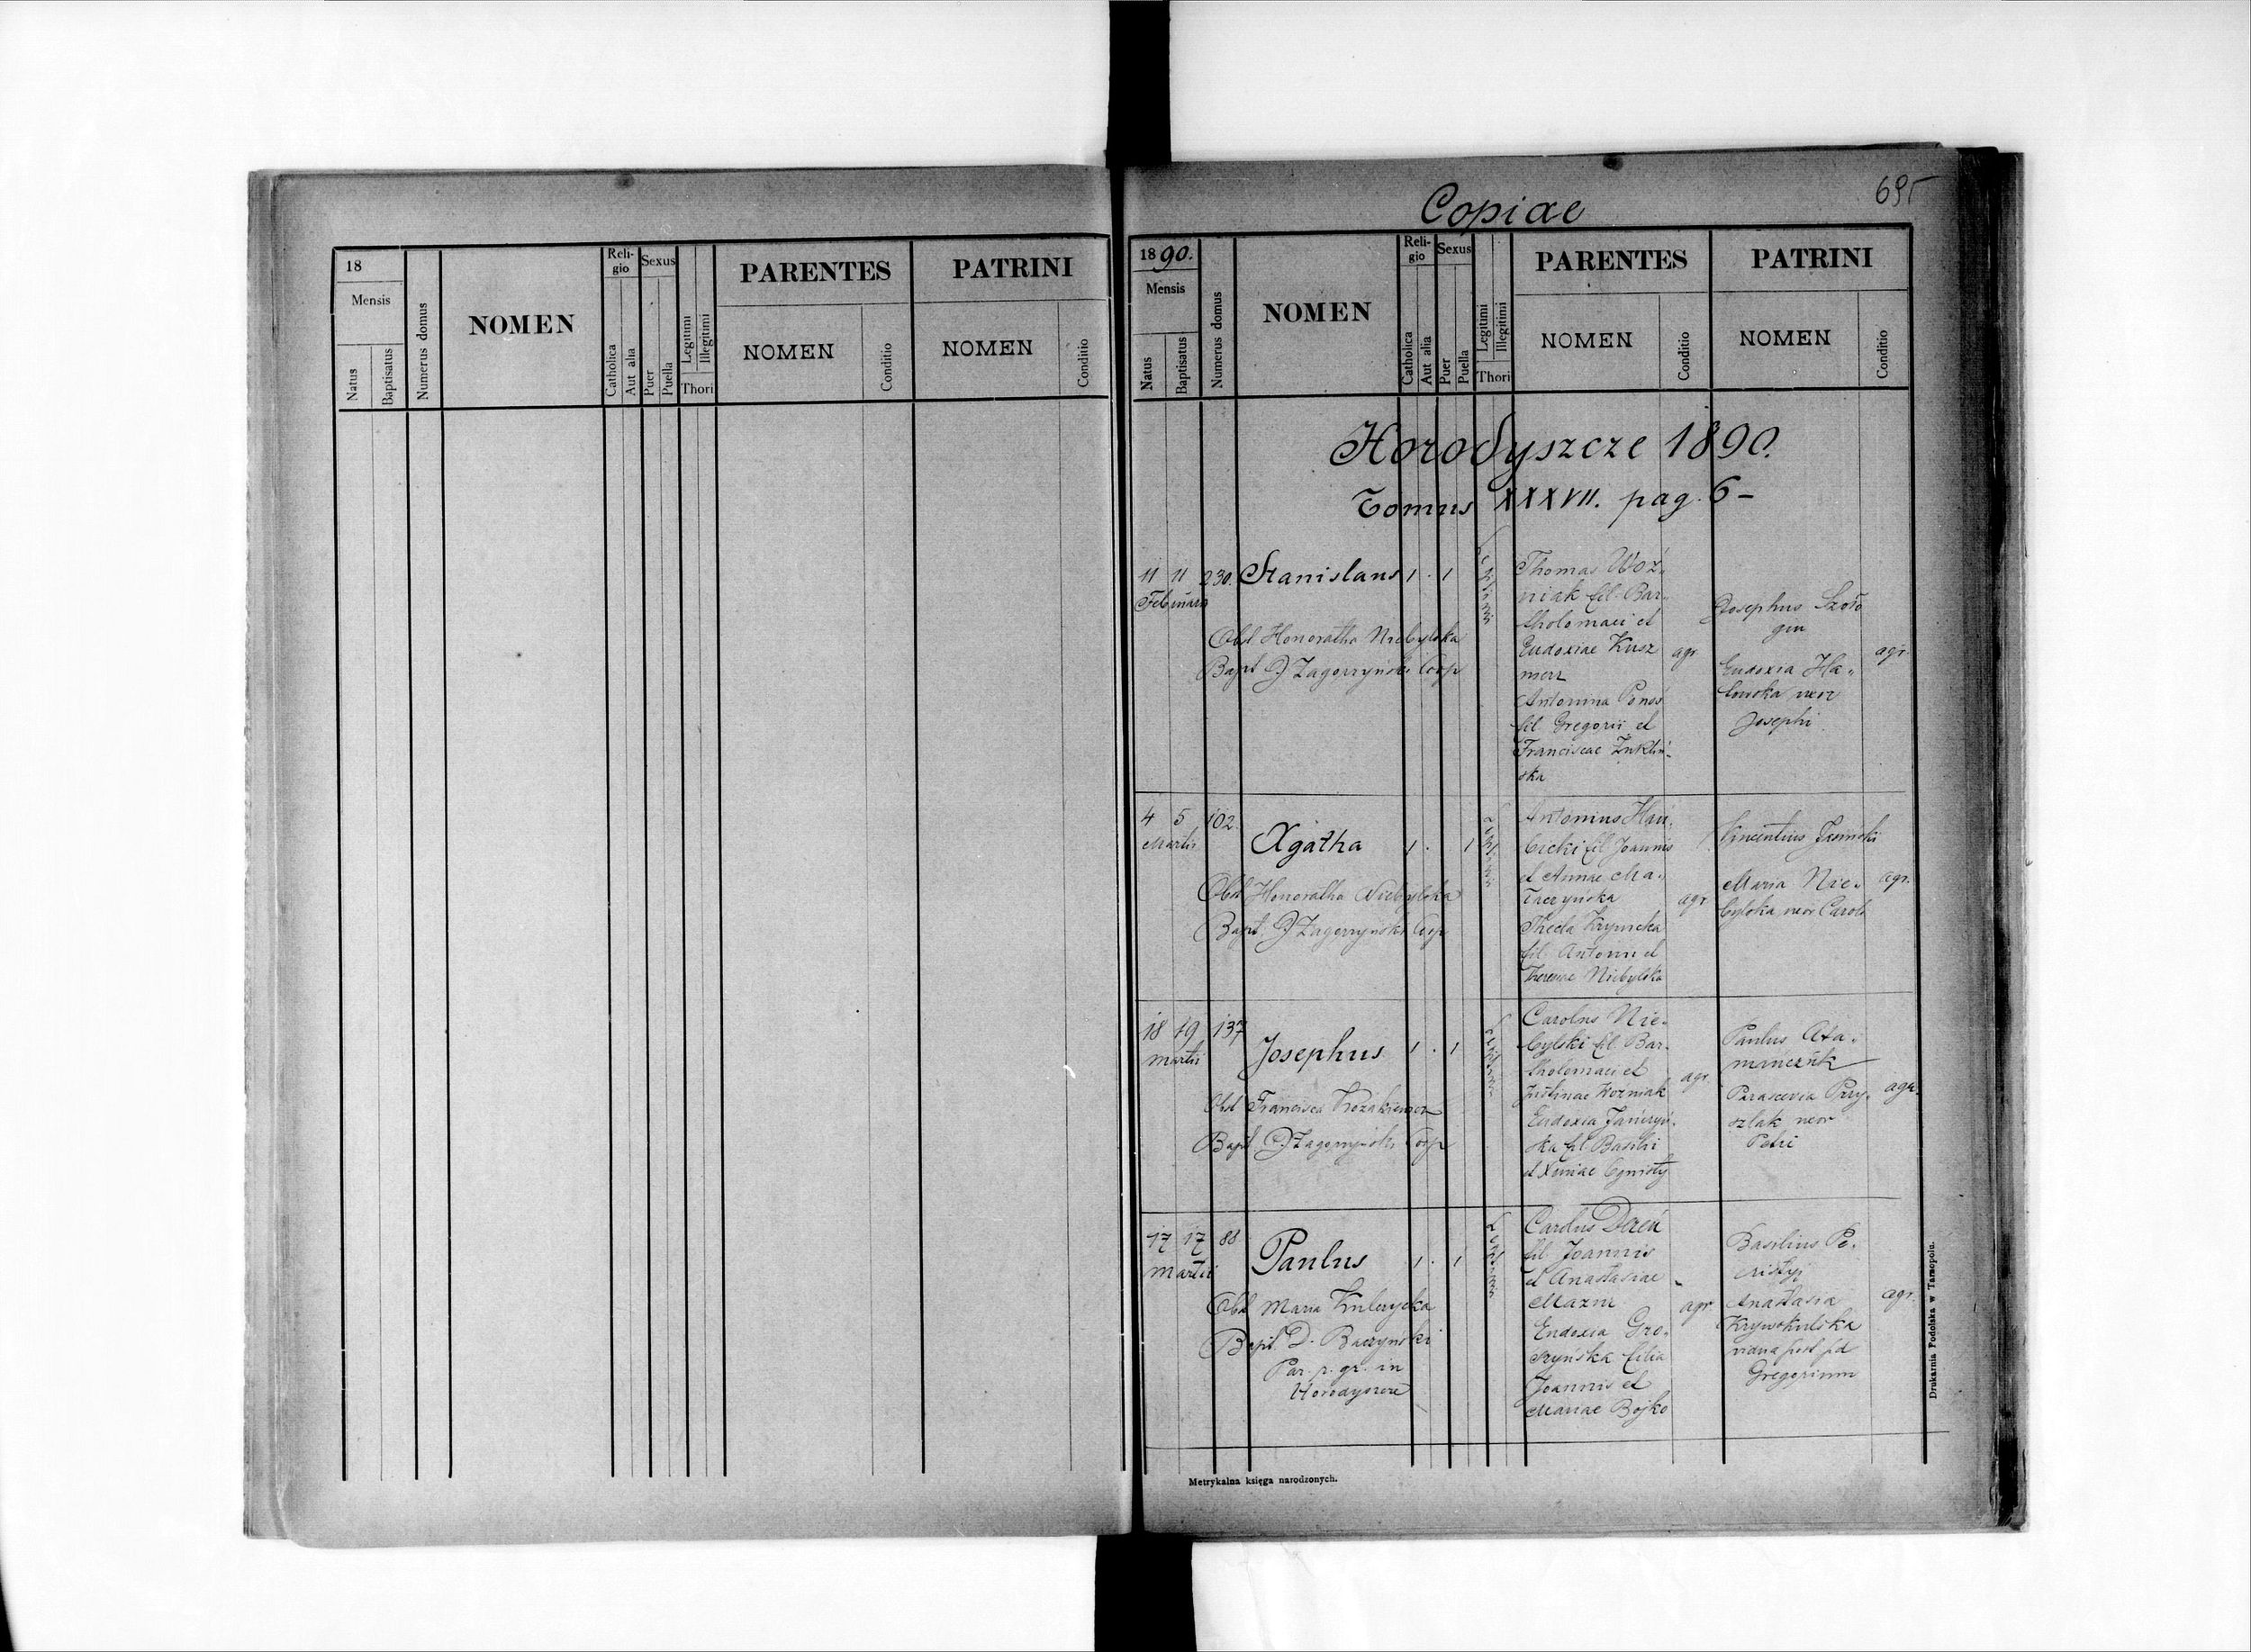 18
Mensis
Natus
Baptisatus
Numerus domus
NOMEN
Reli-
gio
Catholica
Aut alia
Sexus
Puer
Puella
Legitimi
Illegitimi
Thori
PARENTES
NOMEN
Conditio
PATRINI
NOMEN
Conditio
Copiae
695
1890.
Mensis
Natus
Baptisatus
Numerus domus
NOMEN
Reli-
gio
Catholica
Aut alia
Sexus
Puer
Puella
Legitimi
Illegitimi
Thori
PARENTES
NOMEN
Conditio
PATRINI
NOMEN
Conditio
Horodyszcze 1890.
Tomus XXXVII. pag. 6-
11 11 230. Stanislaus 1 . 1
Februarii
Obst Honoratha Niebylska
Bapt Zagorzyński Coop
Legitimi
Thomas Woź„
niak fil. Bar„
tholomaei et
Eudoxiae Kusz
nierz
Antonina
fil Gregorii et
Franciscae
ska
agr
Josephus
Eudoxia Ha„
uxor
Josephi
agr.
4 5 102. Agatha 1 . 1
Martii
Obst Honoratha Niebylska
Bapt. Zagorzyński Coop
Legitimi
Antonius
fil Joannis
et Annae Ma„
Thecla
fil. Antonii et
Theresiae Niebylska
agr
Vincentius Jasiński
Maria Nie„
bylska uxor Caroli
agr.
18 19 137 Josephus 1 . 1
Martii
Obst Francisca
Bapt Zagorzyński Coop
Legitimi
Carolus Nie„
bylski fil. Bar„
tholomaei et
Justinae Woźniak
Eudoxia
ska fil Basilii
et Xeniae Ognisty
agr.
Paulus Ata„
manczuk
Parascevia Przy„
szlak uxor
Petri
agr.
17 17 88 Paulus 1 . 1
Martii
Obst Maria
Bapt. D. Baczyński
Par. r. gr. in
Horodyszcze
Legitimi
Carolus Dereń
fil Joannis
et Anastasiae
Mazur
Eudoxia Gro„
filia
Joannis et
Mariae Bojko
agr.
Basilius
Anastasia
vidua post
Gregorium
agr.
Metrykalna księga narodzonych.
Drukarnia Podolska w Tarnopolu.